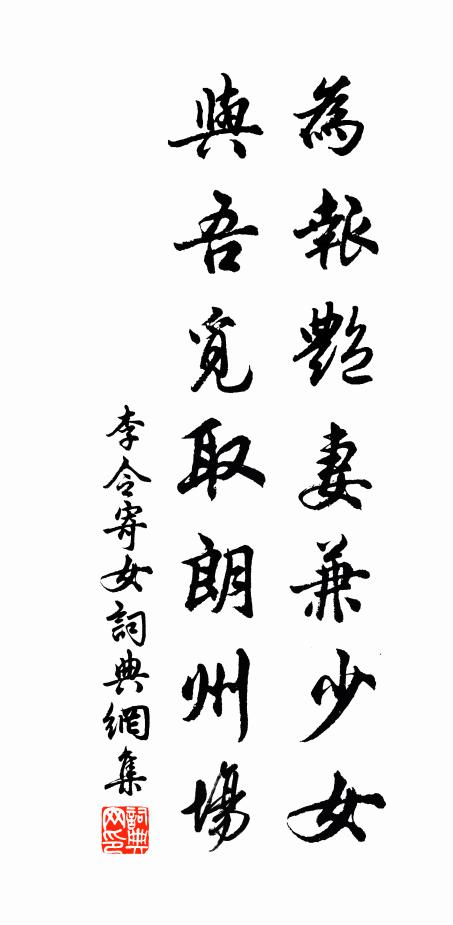 為報艷妻兼少女
與吾覓取朗州場
李令寄女詞典網集
詞典网印